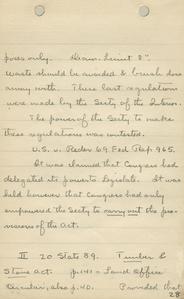 poses only. Diam. Limit 8".
Waste should be avoided & brush done
away with. These last regulations
were made by the Secty of the Interior.
The power of the Secty to make
these regulations was contested.
U.S. v. Fed Rep. 965.
It was claimed that Congress had
delegated its power to Legislate. It was
held however that Congress had only
empowered the Secty to carry out the pro-
visions of the Act.
II 20 Stat 89. Timber &
Stone Act. p. 141 = Land Office
Circular, also p. 40. Provided that
28